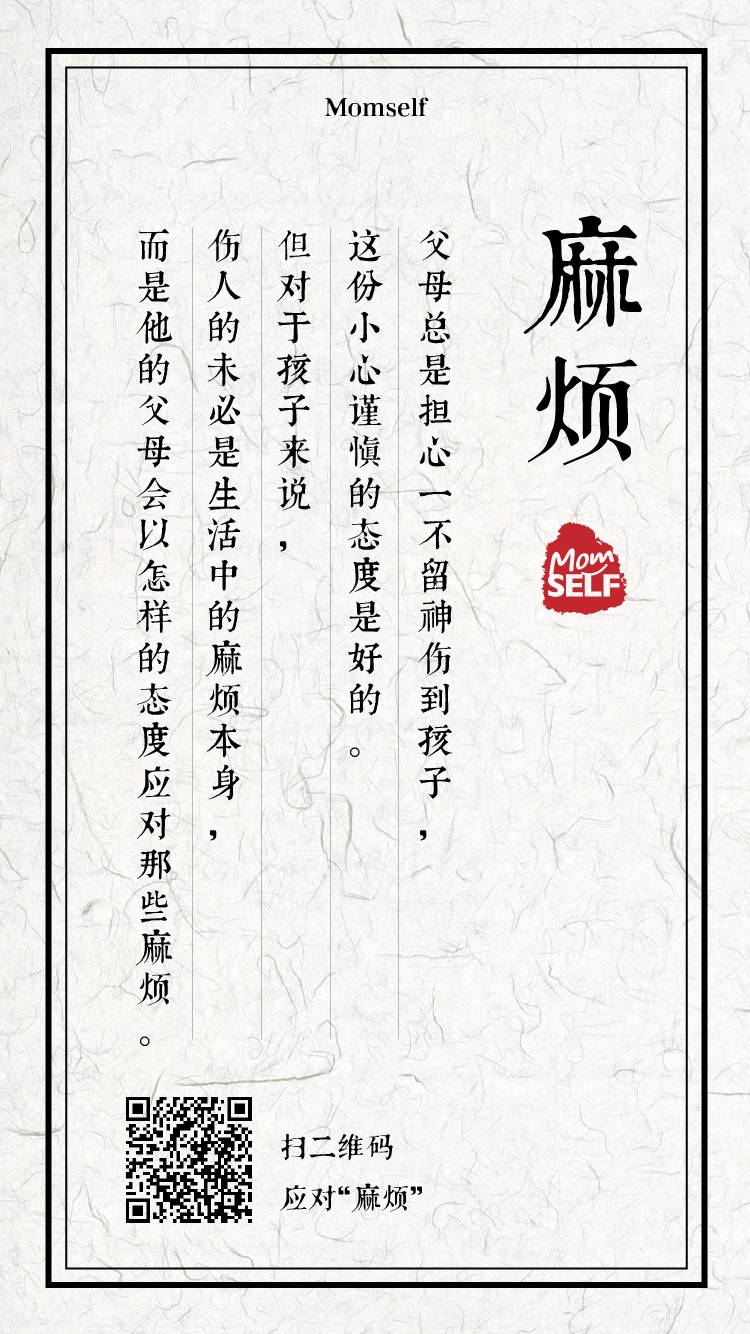 Momself
麻烦
Mom
SELF
父母总是担心一不留神伤到孩子，
这份小心谨慎的态度是好的。
但对于孩子来说，
伤人的未必是生活中的麻烦本身，
而是他的父母会以怎样的态度应对那些麻烦。
扫二维码
应对“麻烦”